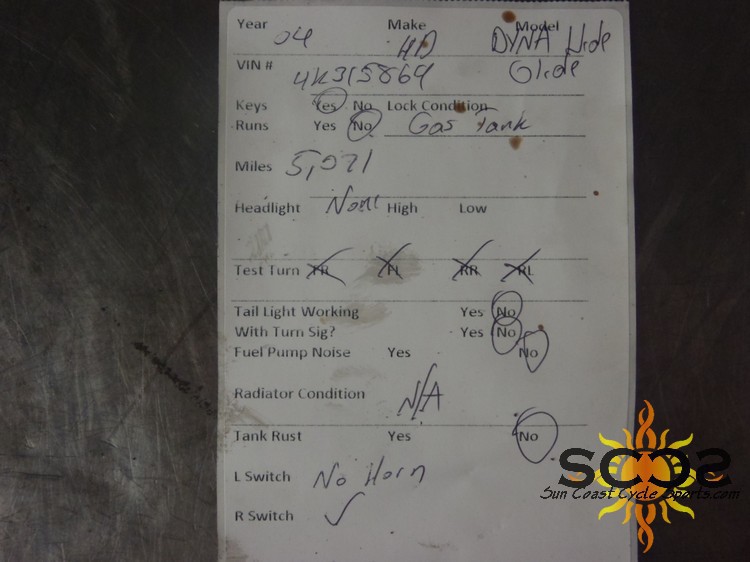 Year 04 Make HD Model DYNA Wide
VIN # 4K315869 Glide
Keys Yes No Lock Condition
Runs Yes No Gas Tank
Miles 5,071
Headlight None High Low
Test Turn FR FL RR RL
Tail Light Working Yes No
With Turn Sig? Yes No
Fuel Pump Noise Yes No
Radiator Condition N/A
Tank Rust Yes No
L Switch No Horn
R Switch ✓
SCCS
Sun Coast Cycle Sports.com